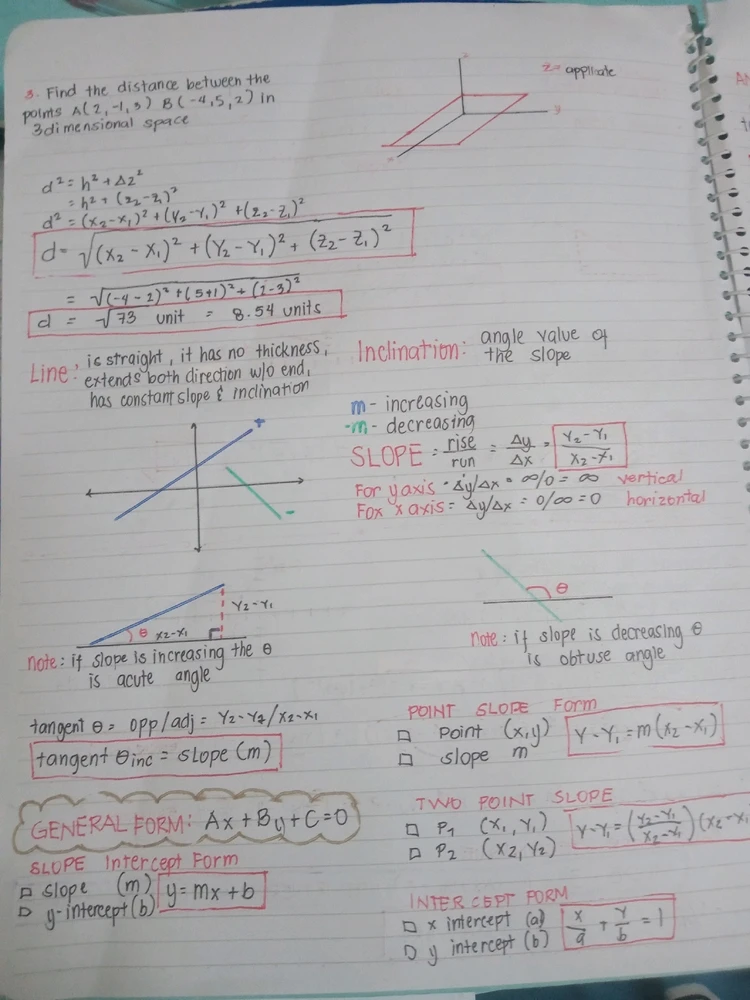 3. Find the distance between the
points A(2,-1,3) B(-4,5,2) in
3dimensional space
z
z= applicate
y
x
d² = h² + Δz²
= h² + (z₂-z₁)²
d² = (x₂-x₁)² + (Y₂-Y₁)² + (z₂-z₁)²
d = √(x₂ - x₁)² + (Y₂ - Y₁)² + (z₂ - z₁)²
= √(-4 - 2)² + (5+1)² + (2-3)²
d = √73 unit = 8.54 units
Line: is straight, it has no thickness,
extends both direction w/o end,
has constant slope & inclination
Inclination: angle value of
the slope
m - increasing
-m - decreasing
SLOPE = rise/run = Δy/Δx = Y₂-Y₁/X₂-X₁
For y axis = Δy/Δx = ∞/0 = ∞ vertical
Fox x axis = Δy/Δx = 0/∞ = 0 horizontal
+
-
θ x₂-x₁
Y₂-Y₁
note: if slope is increasing the θ
is acute angle
θ
note: if slope is decreasing θ
is obtuse angle
tangent θ = opp/adj = Y₂-Y₁/x₂-x₁
tangent θinc = slope (m)
POINT SLOPE Form
□ point (x,y)
□ slope m
Y-Y₁ = m(x₂-x₁)
GENERAL FORM: Ax + By + C = 0
SLOPE Intercept Form
□ slope (m)
□ y-intercept (b)
y = mx + b
TWO POINT SLOPE
□ P₁ (x₁, Y₁)
□ P₂ (x₂, Y₂)
Y-Y₁ = (Y₂-Y₁/x₂-x₁)(x₂-x₁
INTERCEPT FORM
□ x intercept (a)
□ y intercept (b)
x/a + y/b = 1